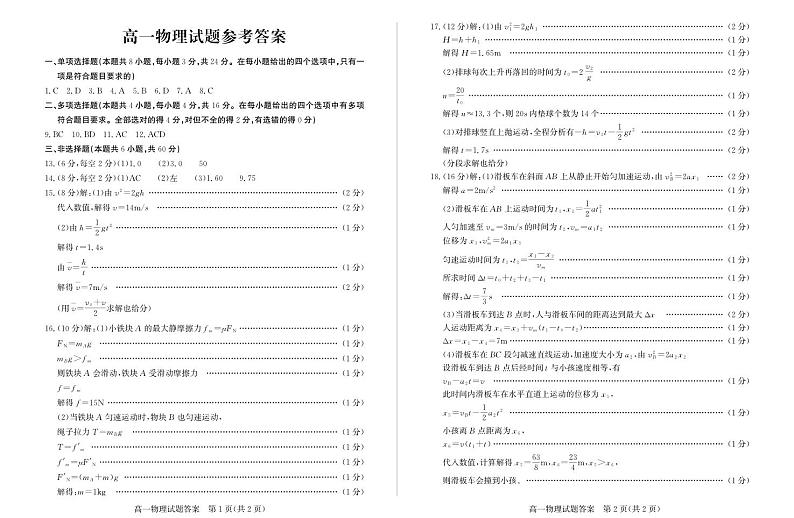 高一物理试题参考答案
一、单项选择题(本题共8小题,每小题3分,共24分。在每小题给出的四个选项中,只有一
项是符合题目要求的)
1.C 2.D 3.B 4.A 5.B 6.D 7.A 8.C
二、多项选择题(本题共4小题,每小题4分,共16分。在每小题给出的四个选项中有多项
符合题目要求。全部选对的得4分,对但不全的得2分,有选错的得0分)
9.BC 10.BD 11.AC 12.ACD
三、非选择题(本题共6小题,共60分)
13.(6分,每空2分)(1)1.0 (2)3.0 50
14.(8分,每空2分)(1)AC (2)左 (3)1.60 9.75
15.(8分)解:(1)由v²=2gh ……(2分)
代入数值,解得v=14m/s ……(2分)
(2)由h=1/2gt² ……(1分)
解得t=1.4s
由v̄=h/t ……(1分)
解得v̄=7m/s ……(2分)
(用v̄=(v₀+v)/2求解也给分)
16.(10分)解:(1)小铁块A的最大静摩擦力fₘ=μF_N ……(1分)
F_N=m_Ag ……(1分)
m_Bg>fₘ ……(1分)
则铁块A会滑动,铁块A受滑动摩擦力 ……(1分)
f=fₘ
解得f=15N ……(1分)
(2)当铁块A匀速运动时,物块B也匀速运动,
绳子拉力T=m_Bg ……(1分)
T=f′ₘ ……(1分)
f′ₘ=μF′_N ……(1分)
F′_N=(m_A+m)g ……(1分)
解得:m=1kg ……(1分)
高一物理试题答案 第1页(共2页)
17.(12分)解:(1)由v₁²=2gh₁ ……(2分)
H=h+h₁ ……(1分)
解得H=1.65m ……(1分)
(2)排球每次上升再落回的时间为t₀=2v₂/g ……(2分)
n=20/t₀ ……(1分)
解得n≈13.3个,则20s内垫球个数为14个 ……(1分)
(3)对排球竖直上抛运动,全程分析有-h=v₁t-1/2gt² ……(2分)
解得t=1.7s ……(2分)
(分段求解也给分)
18.(16分)解:(1)滑板车在斜面AB上从静止开始匀加速运动,由v_B²=2ax₁ ……(2分)
解得a=2m/s² ……(1分)
(2)滑板车在AB上运动时间为t₁,x₁=1/2at₁² ……(1分)
人匀加速至vₘ=3m/s的时间为t₂,vₘ=a₁t₂ ……(1分)
位移为x₂,vₘ²=2a₁x₂
匀速运动时间为t₃,t₃=(x₁-x₂)/vₘ ……(1分)
所求时间Δt=t₀+t₂+t₃-t₁ ……(1分)
解得:Δt=7/3s ……(1分)
(3)当滑板车到达B点时,人与滑板车间的距离达到最大Δx ……(2分)
人运动距离为x₄=x₂+vₘ(t₁-t₀-t₂) ……(1分)
Δx=x₁-x₄=7m ……(1分)
(4)滑板车在BC段匀减速直线运动,加速度大小为a₂,由v_B²=2a₂x₂
设滑板车到达B点后经时间t与小孩速度相等,有
v_B-a₂t=v ……(1分)
此时间内滑板车在水平直道上运动的位移为x₅,
x₅=v_Bt-1/2a₂t² ……(1分)
小孩离B点距离为x₆,
x₆=v(t₁+t) ……(1分)
代入数值,计算解得x₅=63/8m,x₆=23/4m,x₅>x₆,
则滑板车会撞到小孩。 ……(1分)
高一物理试题答案 第2页(共2页)